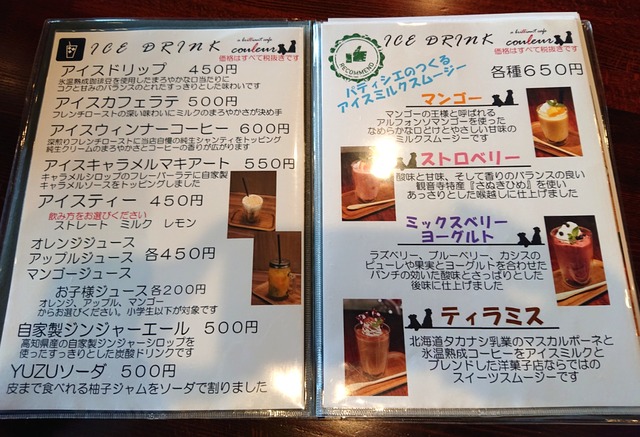 ICE DRINK
a brilliant cafe
couleur
価格はすべて税抜きです
アイスドリップ 450円
氷温熟成珈琲豆を使用したまろやかな口当たりに
コクと甘みのバランスのとれたすっきりとした味わいです
アイスカフェラテ 500円
フレンチローストの深い味わいにミルクのまろやかさが決め手
アイスウィンナーコーヒー 600円
深煎りフレンチローストに当店自慢の純生シャンティをトッピング
純生クリームのまろやかさとコーヒーの香りが広がります
アイスキャラメルマキアート 550円
キャラメルシロップのフレーバーラテに自家製
キャラメルソースをトッピングしました
アイスティー 450円
飲み方をお選びください
ストレート ミルク レモン
オレンジジュース
アップルジュース 各450円
マンゴージュース
お子様ジュース各200円
オレンジ、アップル、マンゴー
からお選びください。小学生以下が対象です
自家製ジンジャーエール 500円
高知県産の自家製ジンジャーシロップを
使ったすっきりとした炭酸ドリンクです
YUZUソーダ 500円
皮まで食べれる柚子ジャムをソーダで割りました
RECOMMEND
ICE DRINK
a brilliant cafe
couleur
価格はすべて税抜きです
パティシエのつくる
アイスミルクスムージー
各種650円
マンゴー
マンゴーの王様と呼ばれる
アルフォンソマンゴーを使った
なめらかな口どけとやさしい甘味の
ミルクスムージーです
ストロベリー
酸味と甘味、そして香りのバランスの良い
観音寺特産『さぬきひめ』を使い
あっさりとした喉越しに仕上げました
ミックスベリー
ヨーグルト
ラズベリー、ブルーベリー、カシスの
ピューレや果実とヨーグルトを合わせた
パンチの効いた酸味とさっぱりとした
後味に仕上げました
ティラミス
北海道タカナシ乳業のマスカルポーネと
氷温熟成コーヒーをアイスミルクと
ブレンドした洋菓子店ならではの
スイーツスムージーです